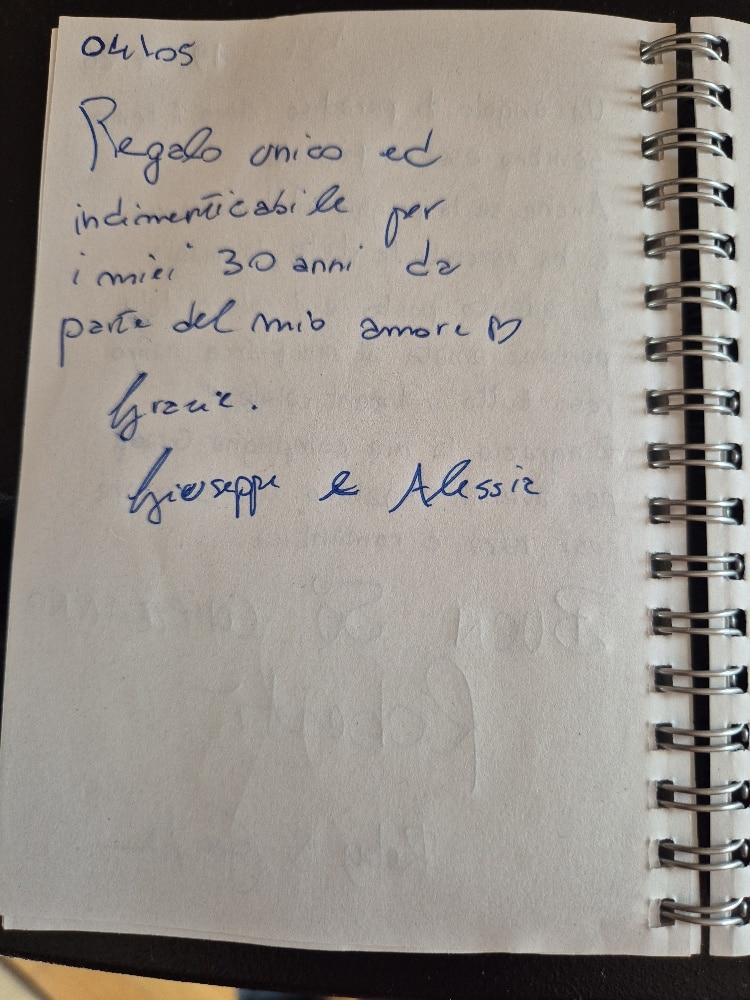 04\05
Regalo unico ed
indimenticabile per
i miei 30 anni da
parte del mio amore ♡
Grazie.
Giuseppe e Alessia